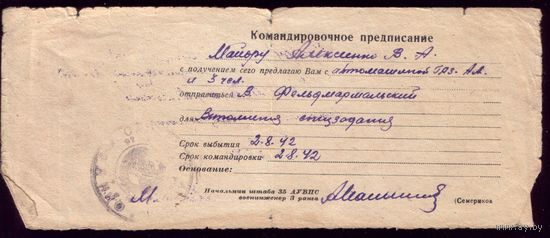 Командировочное предписание
Майору Алексеенко В. А.
с получением сего предлагаю Вам с автомашиной Газ. АА.
и 3 чел.
отправиться В Фельдмаршальский
для Выполнения спецзадания
Срок выбытия 2.8.42
Срок командировки 2.8.42
Основание:
М.
Начальник штаба 35 АУВПС
военинженер 3 ранга
(Семериков
www.ay.by